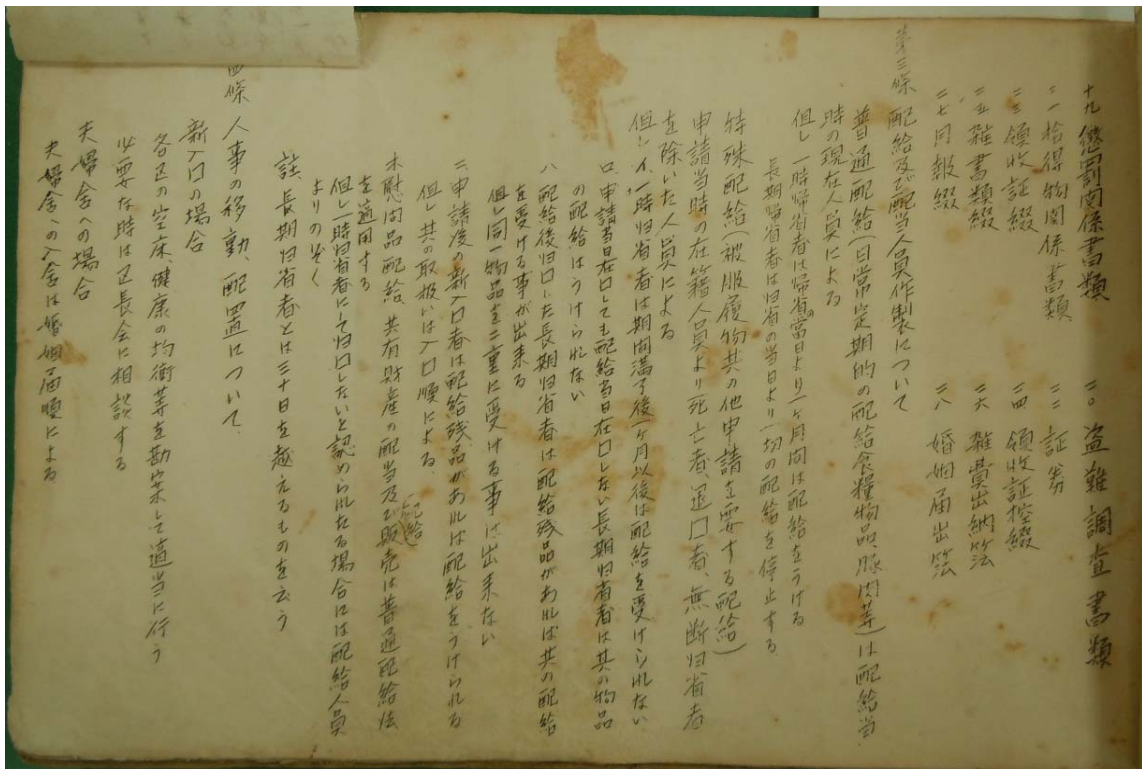 十九 懲罰関係書類　二〇 盗難調査書類
二一 拾得物関係書類　二二 証券
二三 領收証綴　二四 領收証控綴
二五 雑書類綴　二六 雑費出納簿
二七 月報綴　二八 婚姻届出簿
第三條 配給及び配当人員作製について
普通配給(日常定期的の配給食糧物品、豚肉等)は配給当
時の現在人員による
但し 一時帰省者は帰省當日より一ヶ月间は配給をうける
長期帰省者は旧省の当日より一切の配給を停止する
特殊配給(被服履物其の他申請を要する配給)
申請当時の在籍人員より死亡者、退口者、無断旧省者
を除いた人員による
但し イ、一時旧省者は期间満了後一ヶ月以後は配給を受けられない
ロ、申請当日在口しても配給当日在口しない長期旧省者は其の物品
の配給はうけられない
ハ 配給後旧口した長期旧省者は配給残品があれば其の配給
を受ける事が出来る
但し同一物品を二重に受ける事は出来ない
ニ、申請後の新入口者は配給残品があれば配給をうけられる
但し其の取扱いは入口順による
ホ 慰问品配給、共有財産の配当及び(配給)販売は普通配給法
を適用する
但し一時旧省者にして旧口しないと認められたる場合には配給人員
よりのぞく
註、長期旧省者とは三十日を越えるものを云う
四條 人事の移動、配置について
新入口の場合
各区の空床、健康の均衡等を勘案して適当に行う
必要な時は区長会に相談する
夫婦舎への場合
夫婦舎への入舎は婚姻届順による